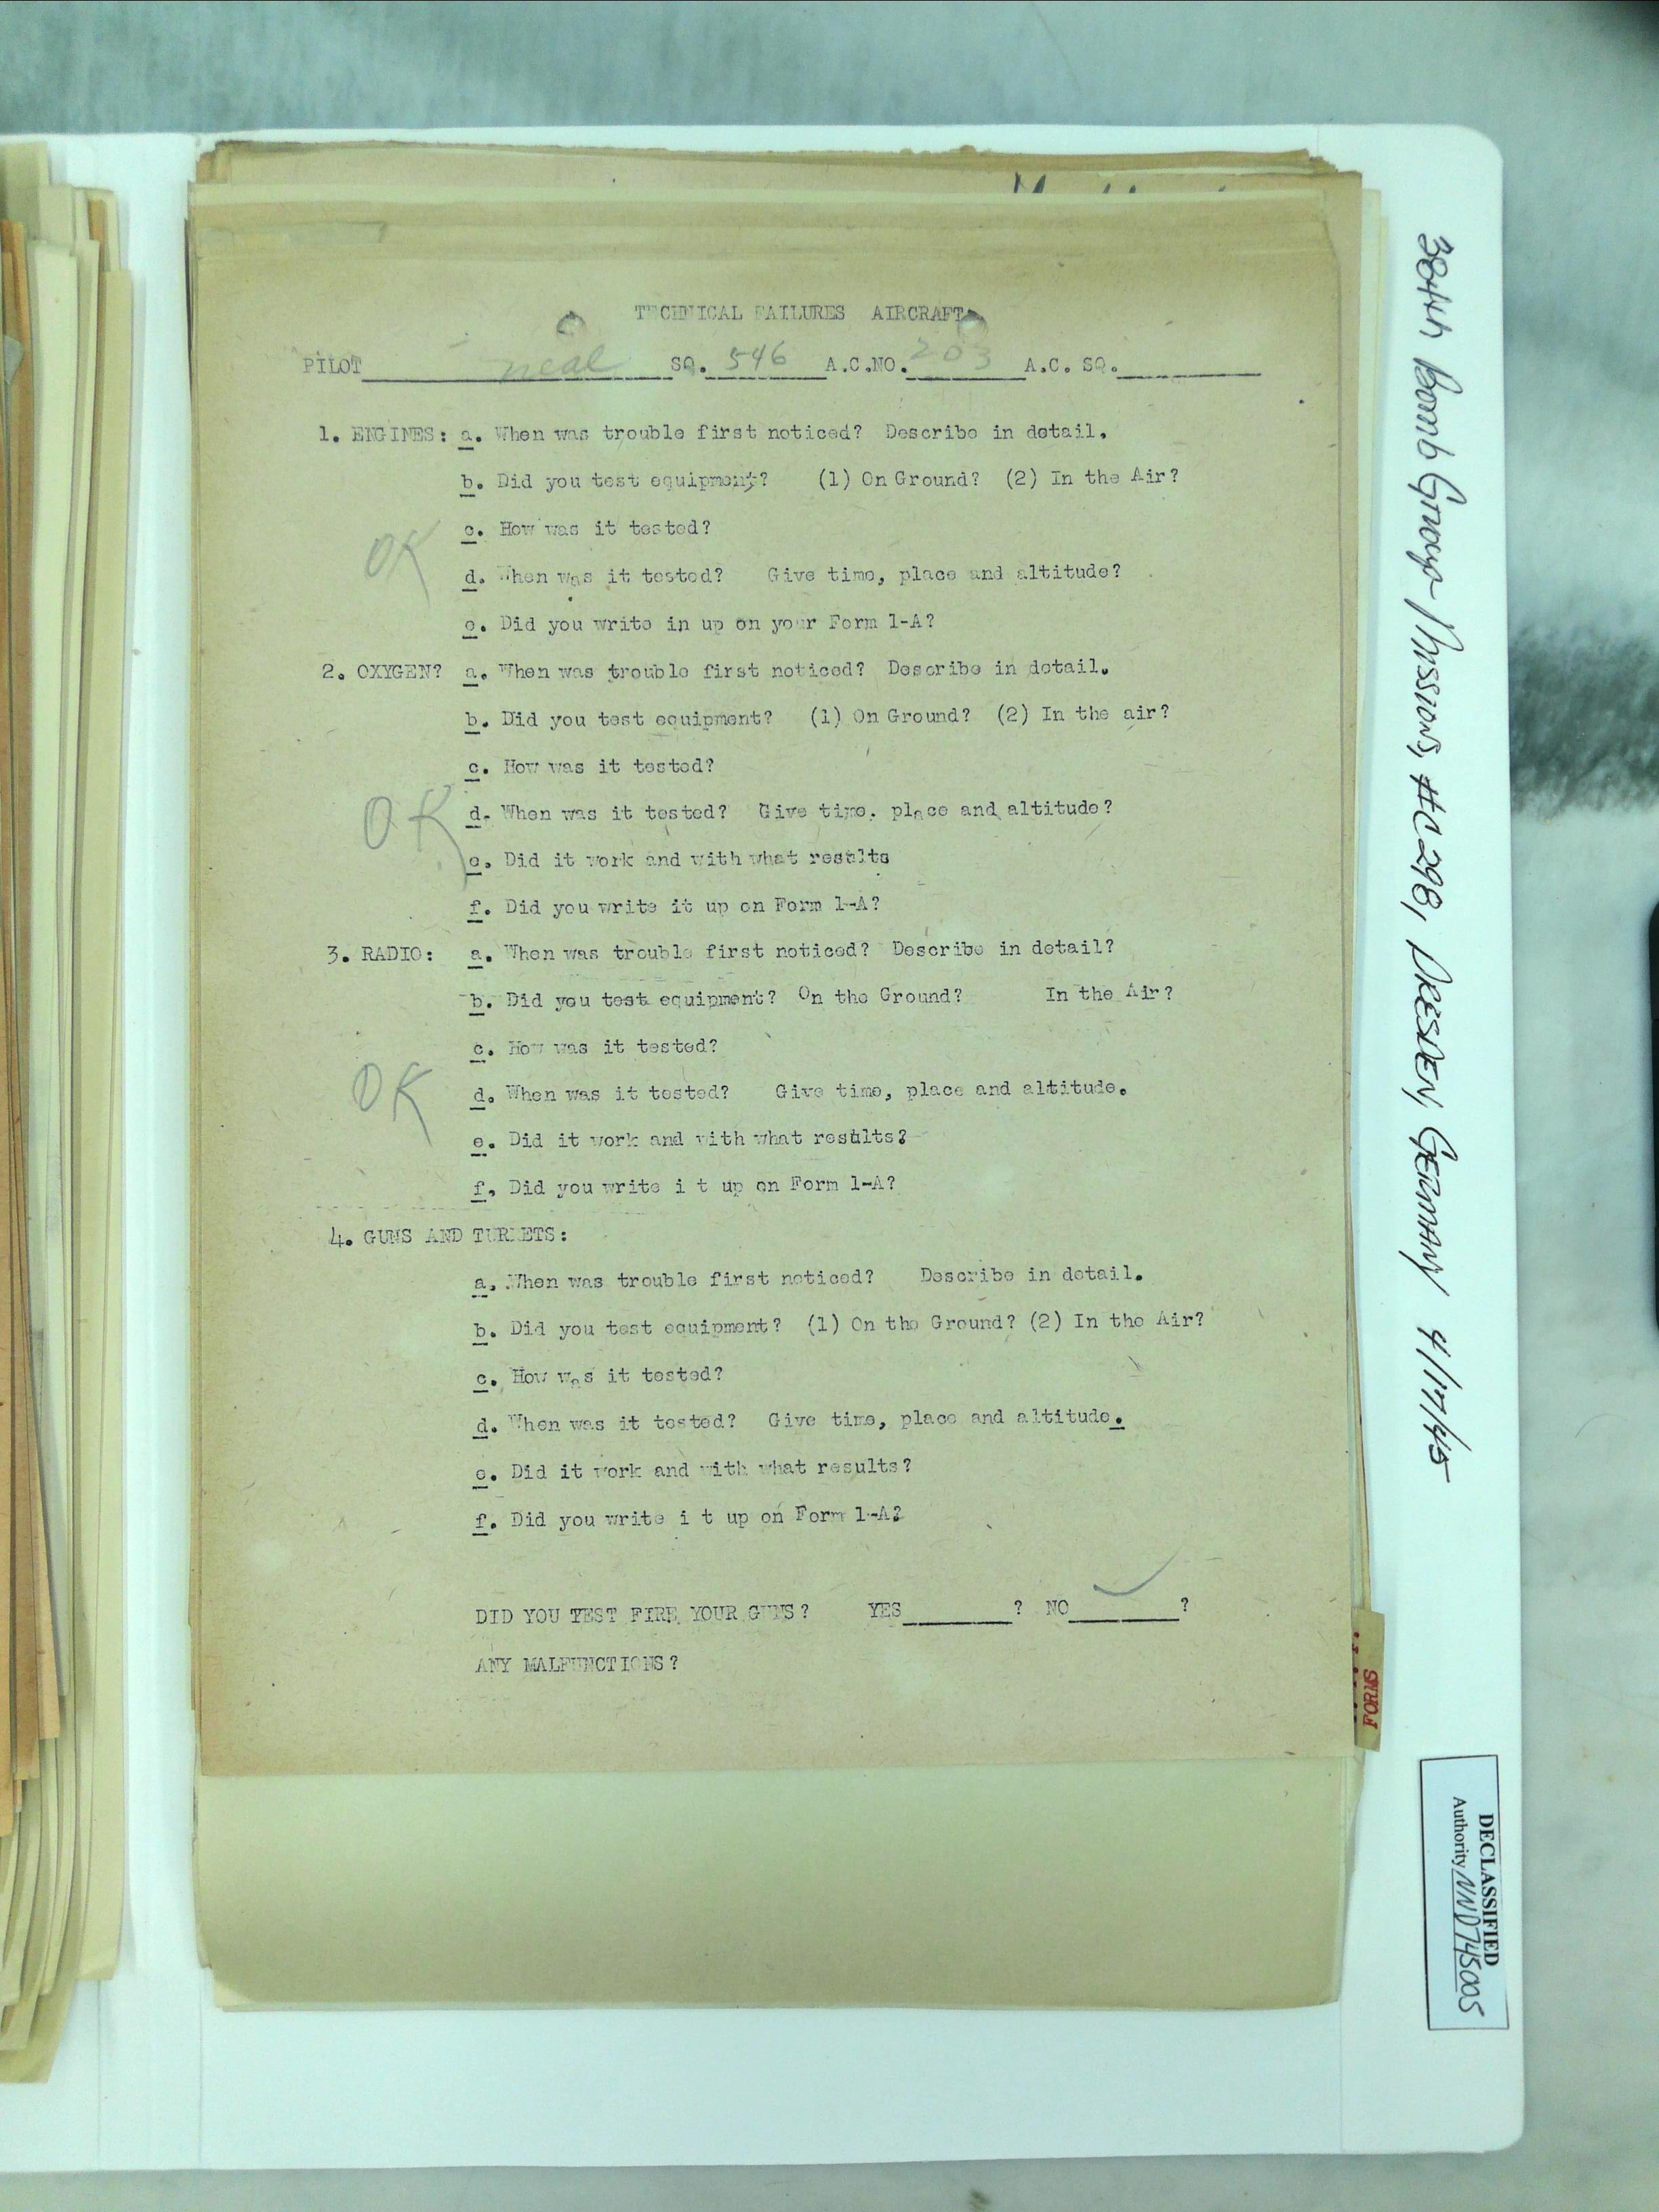 TECHNICAL FAILURES AIRCRAFT
PILOT neal SQ. 546 A.C.NO. 203 A.C. SQ.
1. ENGINES: a. When was trouble first noticed? Describe in detail.
b. Did you test equipment? (1) On Ground? (2) In the Air?
c. How was it tested?
OK
d. When was it tested? Give time, place and altitude?
e. Did you write in up on your Form 1-A?
2. OXYGEN? a. When was trouble first noticed? Describe in detail.
b. Did you test equipment? (1) On Ground? (2) In the air?
c. How was it tested?
OK d. When was it tested? Give time. place and altitude?
e. Did it work and with what results
f. Did you write it up on Form 1-A?
3. RADIO: a. When was trouble first noticed? Describe in detail?
b. Did you test equipment? On the Ground? In the Air?
c. How was it tested?
OK d. When was it tested? Give time, place and altitude.
e. Did it work and with what results?
f. Did you write i t up on Form 1-A?
4. GUNS AND TURRETS:
a. When was trouble first noticed? Describe in detail.
b. Did you test equipment? (1) On the Ground? (2) In the Air?
c. How was it tested?
d. When was it tested? Give time, place and altitude.
e. Did it work and with what results?
f. Did you write i t up on Form 1-A?
DID YOU TEST FIRE YOUR GUNS? YES ? NO ✓ ?
ANY MALFUNCTIONS?
FORMS
384th Bomb Group - Missions, #C298, DRESDEN, GERMANY 4/17/45
DECLASSIFIED
Authority NND745005